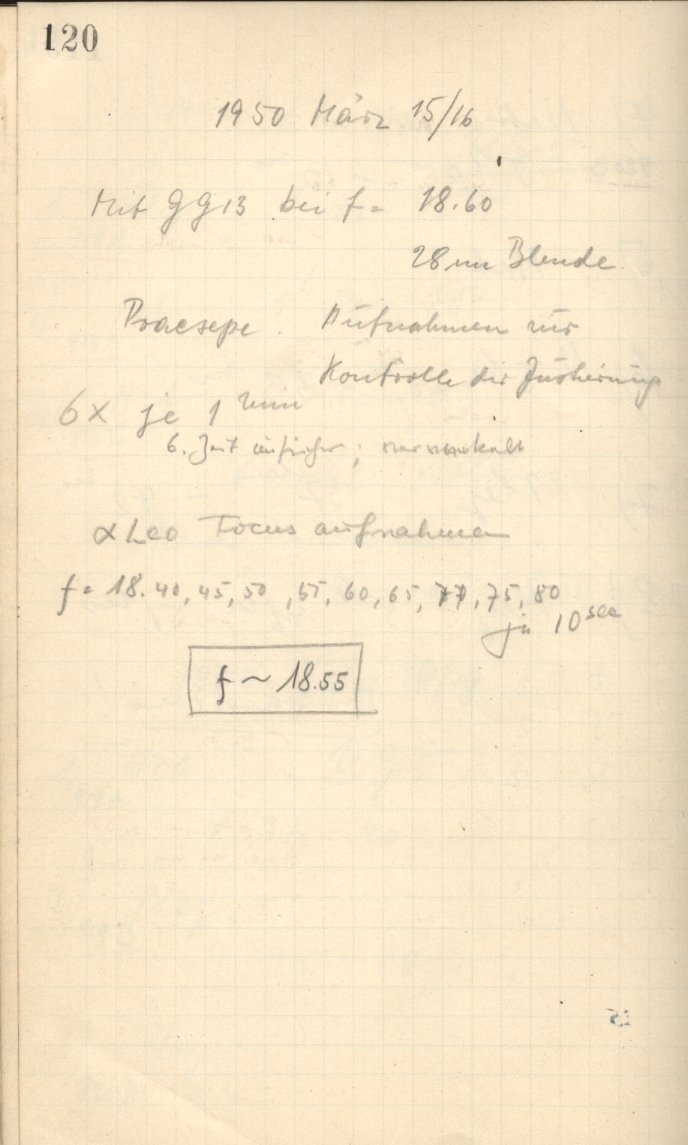 120
1950 März 15/16
Mit GG13 bei f = 18.60
28 mm Blende.
Praesepe. Aufnahmen zur
Kontrolle der Justierung
6x je 1 min
6. Zeit unsicher;
α Leo Focus aufnahmen
f = 18.40, 45, 50, 55, 60, 65, 75, 80
je 10 sec
f ~ 18.55